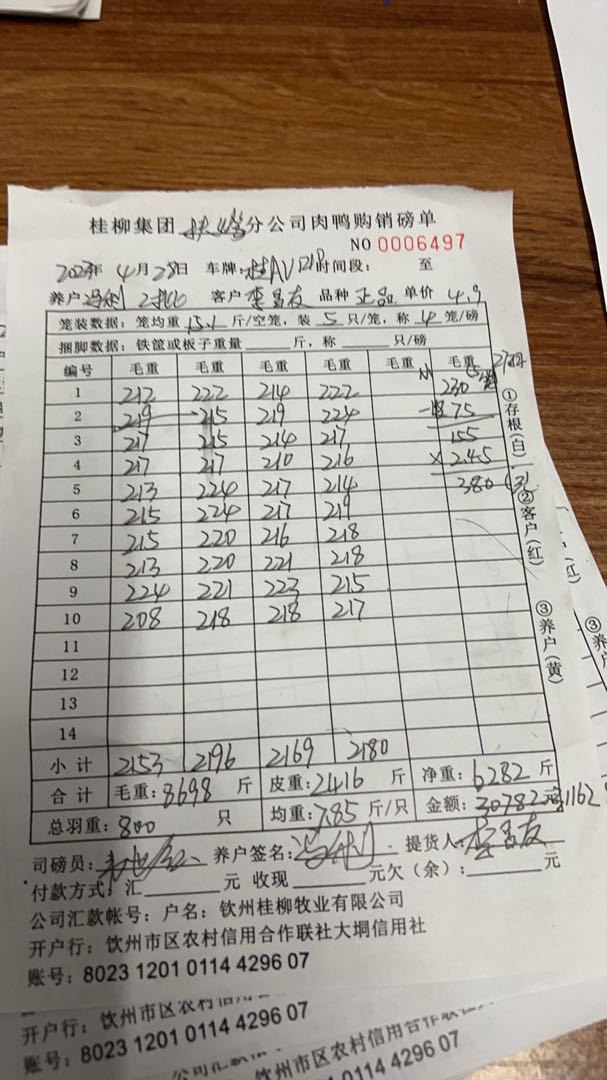 桂柳集团 扶绥 分公司肉鸭购销磅单
NO 0006497
2023年 4月28日 车牌: 桂AV 时间段: 至
养户: 冯利 客户 李昌友 品种 正品 单价 4.9
笼装数据: 笼均重 15.1 斤/空笼, 装 5 只/笼, 称 4 笼/磅
捆脚数据: 铁筐或板子重量 斤, 称 只/磅
编号 毛重 毛重 毛重 毛重 毛重 毛重
1 212 222 214 222 230
2 219 215 219 224 75
3 217 215 214 217 155
4 217 217 210 216 ×2.45
5 213 224 217 214 380
6 215 224 217 219
7 215 220 216 218
8 213 220 221 218
9 224 221 223 215
10 208 218 218 217
11
12
13
14
小计 2153 2196 2169 2180
合计 毛重: 8698 斤 皮重: 2416 斤 净重: 6282 斤
总羽重: 800 只 均重: 7.85 斤/只 金额: 30782元 31162
司磅员: 养户签名: 冯利 提货人: 李昌友
付款方式: 汇 元 收现 元欠(余): 元
公司汇款帐号: 户名: 钦州桂柳牧业有限公司
开户行: 钦州市区农村信用合作联社大垌信用社
账号: 8023 1201 0114 4296 07
①存根(白)
②客户(红)
③养户(黄)
(红)
③养户
开户行: 钦州市区农村信用
账号: 8023 1201 0114 4296 07
钦州市区农村信用合作联
1201 0114 4296 07